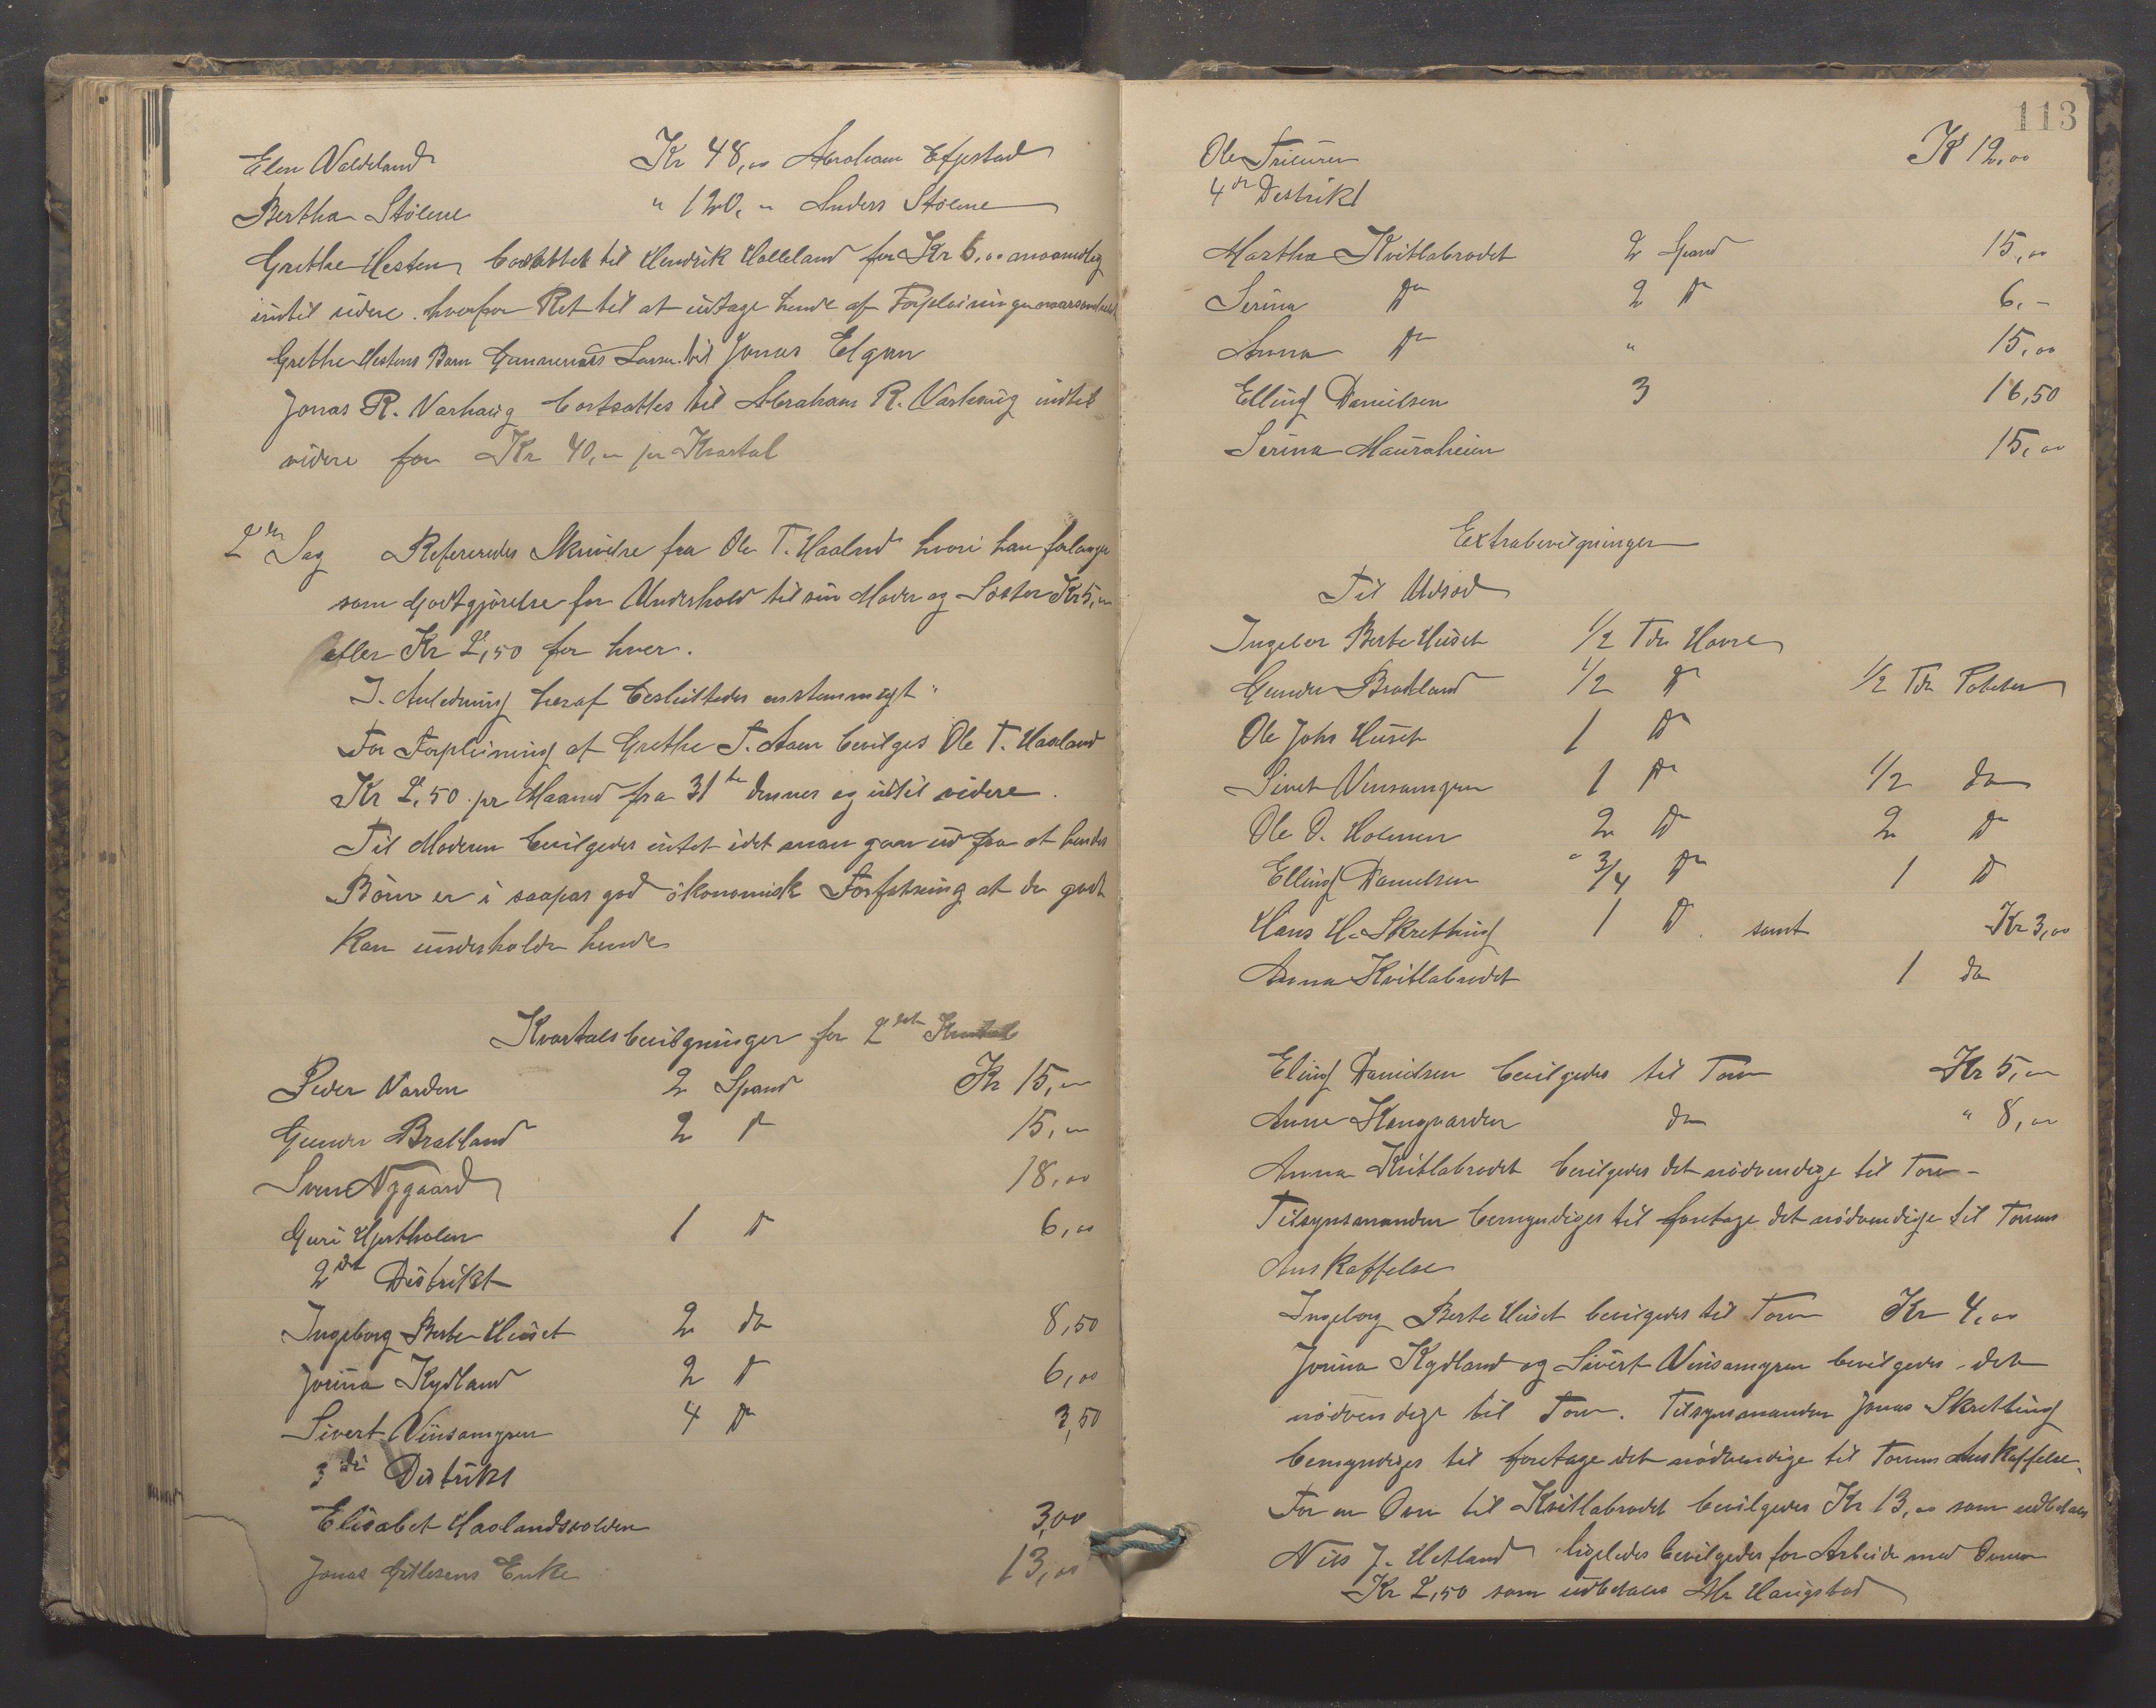 Elen Valdeland Kr 48,00 Abraham Efjestad
Bertha Stølene " 120, " Anders Stølene
Grethe Hesten bortsattes til Hendrik Halleland for Kr 5,00 maanedlig
indtil videre. hvorfor Ret til at udtage hende af Forpleiningen naarsomhelst
Grethe Hestens Barn Larsen til Jonas Elgan
Jonas R. Varhaug bortsattes til Abraham R. Varhaug indtil
videre for Kr 40,00 pr Kvartal
2den Sag Refereredes Skrivelse fra Ole T. Haaland hvori han forlanger
som Godtgjørelse for Underhold til sin Moder og Søster Kr 5,00
eller Kr 2,50 for hver.
I Anledning heraf besluttedes enstemmigt "
For Forpleining af Grethe T. Aaen bevilges Ole T. Haaland
Kr 2,50 pr Maaned fra 31te dennes og indtil videre.
Til Moderen bevilgedes intet idet man gaar ud fra at hendes
Børn er i saapas god økonomisk Forfatning at de godt
kan underholde hende
Kvartalsbevilgninger for 2det Kvartal
Peder Varden 2 Spand Kr 15,00
Gunder Bratland 2 do 15,00
Sven Nygaard 18,00
Guri Hjertholen 1 do 6,00
2det Distrikt
Ingeborg Berte Huset 2 do 8,50
Jorina Kydland 2 do 6,00
Sivert Vinsamyren 4 do 3,50
3die Distrikt
Elisabet Haalandsvolden 3,00
Jonas Gitlesens Enke 13,00
113
Ole Kr 12,00
4de Destrikt
Martha Kvitlabrodet 2 Spand 15,00
Serina do 2 do 6,-
Anna do " 15,00
Elling Danielsen 3 16,50
Serina Mauraheien 15,00
Extrabevilgninger
Til Udsæd
Ingebor Berte Huset 1/2 Tdr Havre
Gunder Bratland 1/2 do 1/2 Tdr Poteter
Ole Johs Huset 1 do
Sivert Vinsamyren 1 do 1/2 do
Ole O. Holmen 2 do 2 do
Elling Danielsen " 3/4 do 1 do
Hans H. Skretting 1 do. samt Kr 3,00
Anna Kvitlabrodet 1 do
Eling Danielsen bevilgedes til Torv Kr 5,00
Anne Kongvarden do " 8,00
Anna Kvitlabrodet bevilgedes det nødvendige til Torv -
Tilsynsmanden bemyndiges til foretage det nødvendige til Torvens
Anskaffelse
Ingeborg Berte Huset bevilgedes til Torv Kr 4,00
Jorina Kydland og Sivert Vinsamyren bevilgedes det
nødvendige til Torv. Tilsynsmanden Jonas Skretting
bemyndiges til foretage det nødvendige til Torvens Anskaffelse.
For en Ovn til Kvitlabrodet bevilgedes Kr 13,00 som udbetales
Nils J. Hetland ligeledes bevilgedes for Arbeide med Ovnen
Kr 2,50 som udbetales Haugstad